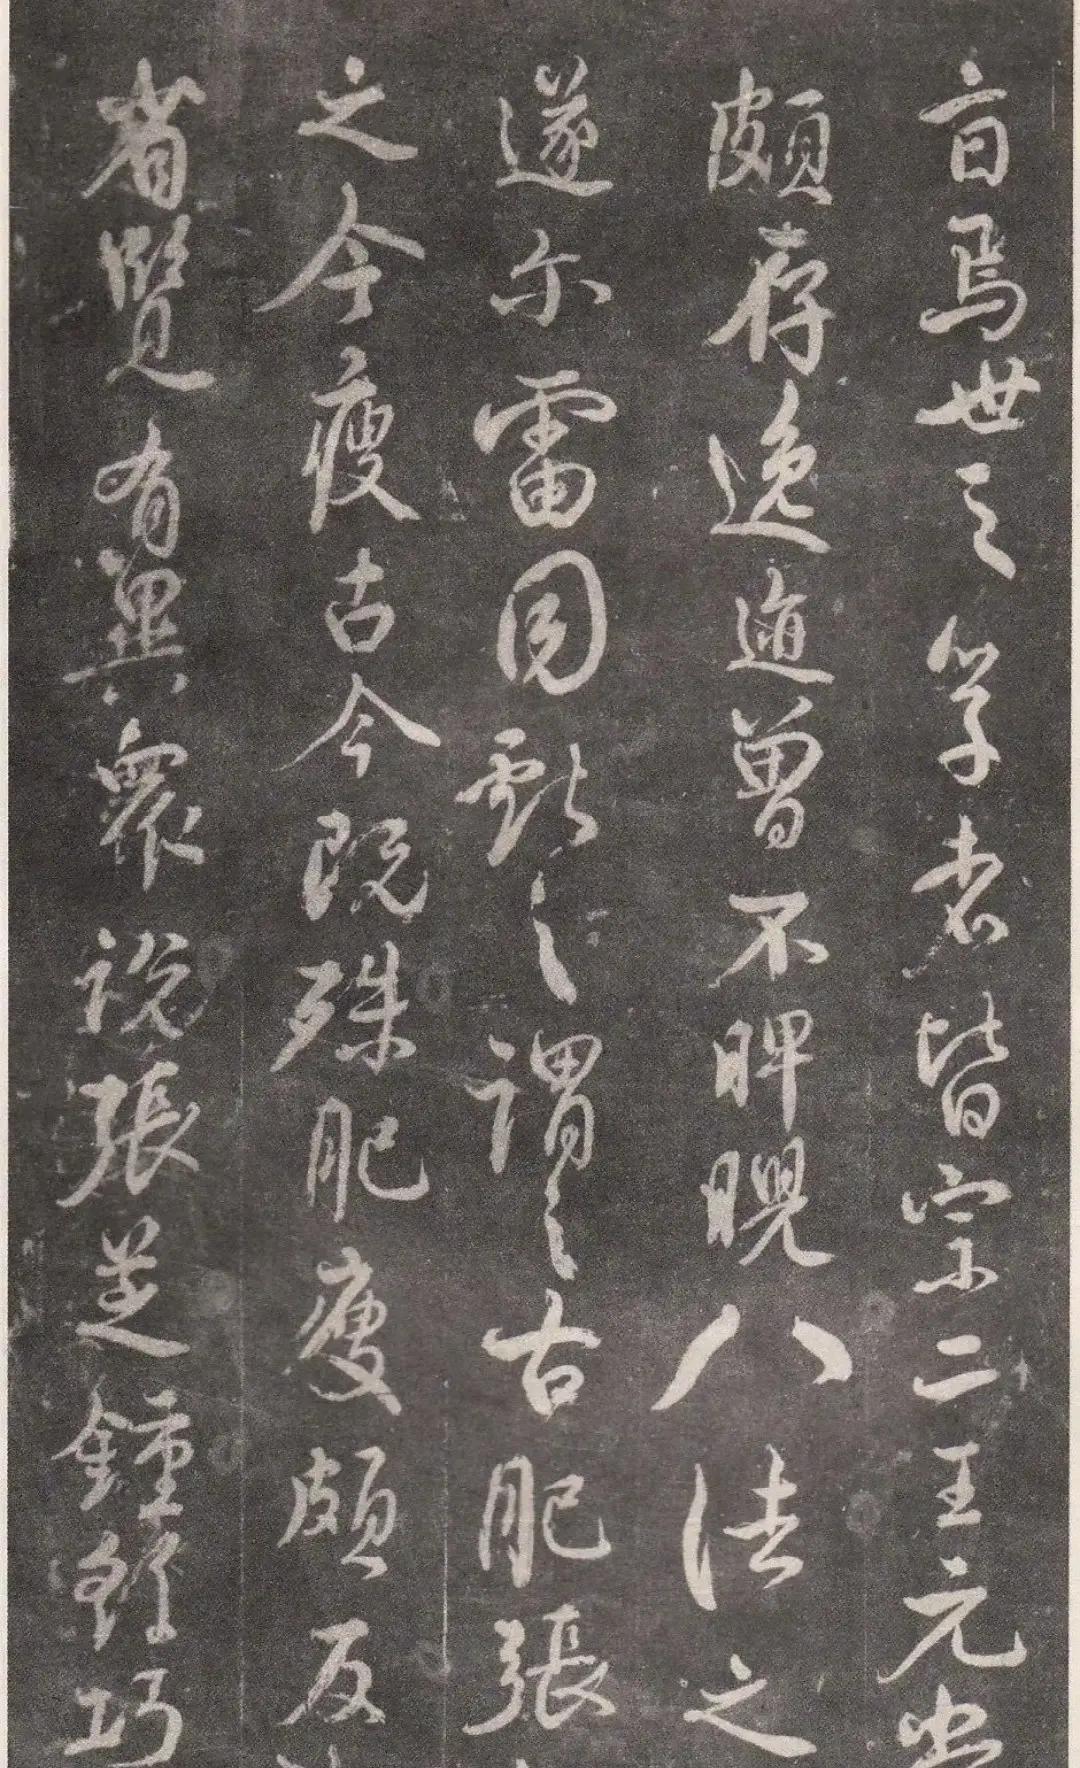 焉世之學者皆宗二王元
頗存逸曾不睥睨八法之
遂尔雷同獻之謂之古肥張
之今瘦古今既殊肥瘦頗反
省覽有異衆說張芝鍾繇巧